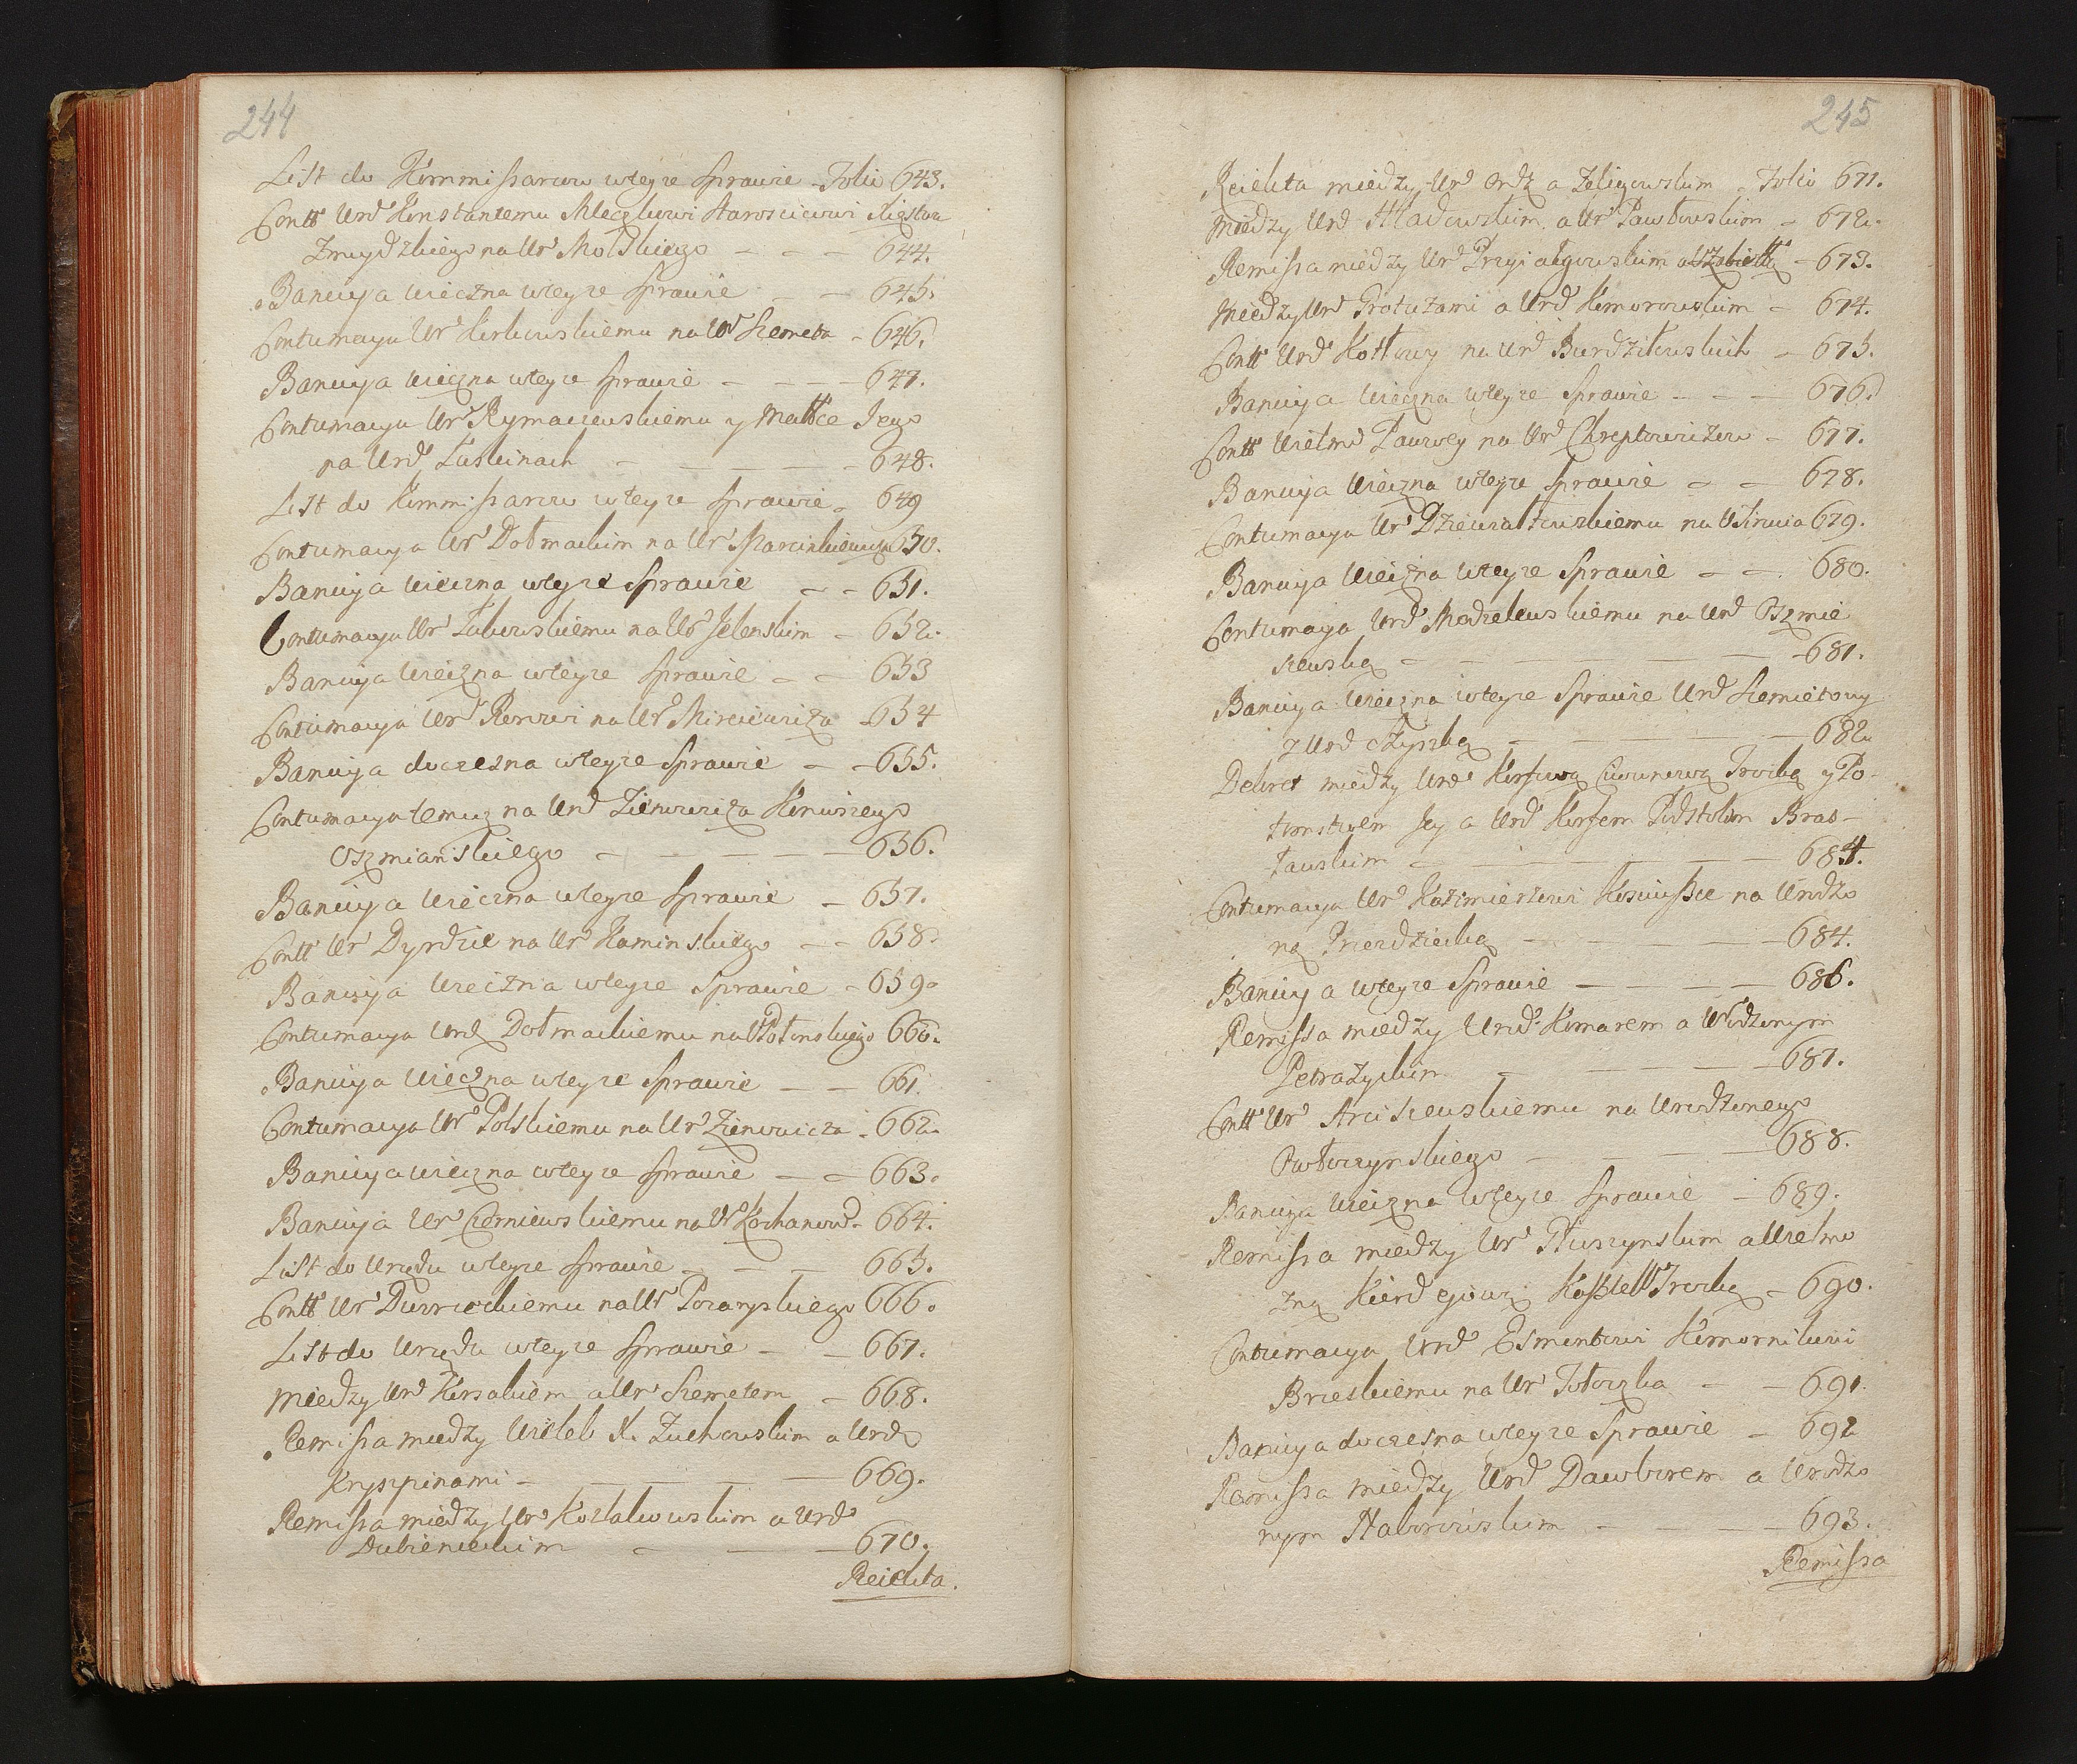 244
List do Kommissarzow wteyze Sprawie Folio 643.
Contt Urd Konstantemu Mleczkowi Staroscicowi Xięstwa
Zmuydzkiego na Ur Molskiego — 644.
Banicya wieczna wteyze Sprawie — 645.
Contumacya Ur Kirkowskiemu na Ur Szemeta — 646.
Banicya wieczna wteyze Sprawie — 647.
Contumacya Ur Rymaszewskiemu y Matce Jego
na Urd Luskinach — 648.
List do Kommissarzow wteyze Sprawie — 649
Contumacya Ur Dołmackim na Ur Marcinkiewicza 650.
Banicya wieczna wteyze Sprawie — 651.
Contumacya Ur Zabowskiemu na Ur Jelenskim — 652.
Banicya wieczna wteyze Sprawie — 653
Contumacya Urd Rewowi na Ur Mirowicza — 654
Banicya doczesna wteyze Sprawie — 655.
Contumacya temuz na Urd Zienowicza Koniuszego
Oszmianskiego — 656.
Banicya wieczna wteyze Sprawie — 657.
Contt Ur Dyrdzie na Ur Kaminskiego — 658.
Banicya wieczna wteyze Sprawie — 659.
Contumacya Urd Dołmackiemu na Ur Połonskiego 660.
Banicya wieczna wteyze Sprawie — 661.
Contumacya Ur Polskiemu na Ur Zienowicza — 662.
Banicya wieczna wteyze Sprawie — 663.
Banicya Ur Czerniewskiemu na Ur Kochanowd — 664.
List do Urzędu wteyze Sprawie — 665.
Contt Ur Dworzeckiemu na Ur Pozaryskiego 666.
List do Urzędu wteyze Sprawie — 667.
Między Urd Korsakiem a Ur Szemetem — 668.
Remissa między Wieleb X. Zuchowskim a Urd
Kryszpinami — 669.
Remissa między Ur Kozłakowskim a Urd
Dubienieckim — 670.
Reiekta.
245
Reiekta między Urd Ordą a Zeligowskim Folio 671.
Między Urd Hładowskim a Ur Pawłowskim — 672.
Remissa między Urd Przyiałgowskim a Szlachtą — 673.
Między Urd Protazami a Urd Komorowskim — 674.
Contt Urd Kottowy na Urd Burdziłowskich — 675.
Banicya wieczna wteyze Sprawie — 676.
Contt Wielmo Pacowey na Urd Chreptowiczow — 677.
Banicya wieczna wteyze Sprawie — 678.
Contumacya Ur Dziewiałtowskiemu na Utinwia 679.
Banicya wieczna wteyze Sprawie — 680.
Contumacya Urd Modzelewskiemu na Urd Oszmie
szewską — 681.
Banicya wieczna wteyze Sprawie Urd Szemietowy
z Urd Czyrską — 682.
Dekret między Urd Korfową Ciwunową Trocką y Po-
tomstwem Jey a Urd Korfem Podstolim Bras-
ławskim — 684.
Contumacya Ur Kazimierzowi Kosciuszce na Urodzo
ną Przezdziecką — 684.
Banicya wteyze Sprawie — 686.
Remissa między Urd Komarem a Urodzonym
Petrazyckim — 687.
Contt Ur Arciszewskiemu na Urodzonego
Owłoczynskiego — 688.
Banicya wieczna wteyze Sprawie — 689.
Remissa między Ur Tłuszynskim a Wielmo
zną Kierdejową Kasztell Trocką — 690.
Contumacya Urd Esmontowi Komornikowi
Brzeskiemu na Ur Tołoczka — 691.
Banicya doczesna wteyze Sprawie — 692
Remissa między Urd Dawborem a Urodzo
nym Haborowskim — 693.
Remissa